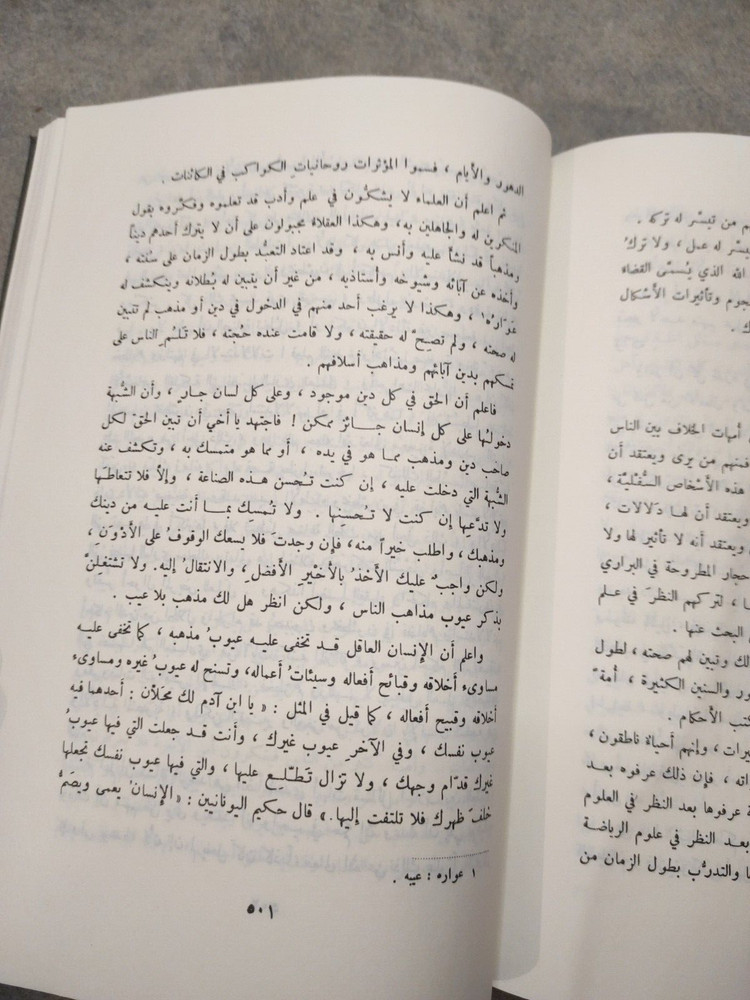 الدهور والأيام ، فسموا المؤثرات روحانيات الكواكب في الكائنات .
ثم اعلم أن العلماء لا يشكّون في علم وأدب قد تعلموه وفكّروه بقول
المنكرين له والجاهلين به، وهكذا العقلاء مجبولون على أن لا يترك أحدهم ديناً
ومذهباً قد نشأ عليه وأنس به ، وقد اعتاد التعبُّد بطول الزمان على سُنّته ،
وأخذه عن آبائه وشيوخه وأستاذيه ، من غير أن يتبين له بُطلانه وينكشف له
عَوارُه١ ، وهكذا لا يرغب أحد منهم في الدخول في دين أو مذهب لم تتبين
له صحته ، ولم تصحّ له حقيقته ، ولا قامت عنده حُجته ، فلا تَلُم الناس على
تمسكهم بدين آبائهم ومذاهب أسلافهم .
فاعلم أن الحق في كل دين موجود ، وعلى كل لسان جارٍ ، وأن الشُّبهة
دخولُها على كل إنسان جائز ممكن ! فاجتهد يا أخي أن تبين الحقّ لكل
صاحب دين ومذهب مما هو في يده ، أو مما هو متمسك به ، وتكشف عنه
الشُّبهة التي دخلت عليه ، إن كنت تُحسن هذه الصناعة ، وإلّا فلا تتعاطَها
ولا تدّعِها إن كنت لا تُحسِنها . ولا تُمسِك بما أنت عليه من دينك
ومذهبك ، واطلب خيراً منه، فإن وجدتَ فلا يسعك الوقوفُ على الأَدْوَنِ ،
ولكن واجبٌ عليك الأخذُ بالأَخْيَرِ الأَفضل ، والانتقالُ إليه. ولا تشتغلنّ
بذكر عيوب مذاهب الناس ، ولكن انظر هل لك مذهب بلا عيب .
واعلم أن الإنسان العاقل قد تخفى عليه عيوبُ مذهبه ، كما تخفى عليه
مساوىء أخلاقه وقبائح أفعاله وسيئاتُ أعماله، وتسنح له عيوبُ غيره ومساوىء
أخلاقه وقبيح أفعاله ، كما قيل في المثل : « يا ابن آدم لك مخلاتان : أحدهما فيه
عيوب نفسك ، وفي الآخرِ عيوب غيرك ، وأنت قد جعلت التي فيها عيوبُ
غيرك قدّام وجهك ، ولا تزال تَطّلِع عليها ، والتي فيها عيوب نفسك تجعلها
خلفَ ظهرك فلا تلتفت إليها. » قال حكيم اليونانيين : « الإنسانُ يعمى ويصَمُّ
١ عواره : عيبه .
٥٠١
من تيسّر له تركه .
يسّر له عمل ، ولا تركُ
الله الذي يُسمّى القضاء
جوم وتأثيرات الأشكال
ك .
أمهات الخلاف بين الناس
فمنهم من يرى ويعتقد أن
هذه الأشخاص السُّفليّة ،
ويعتقد أن لها دلالات ،
ويعتقد أنه لا تأثير لها ولا
حجار المطروحة في البراري
ـا ، لتركهم النظرَ في علم
البحث عنها .
لك وتبين لهم صحته ، لطول
ور والسنين الكثيرة ، أمةً
كتب الأحكام .
ثيرات ، وإنهم أحياء ناطقون ،
اته ، فإن ذلك عرفوه بعد
عرفوها بعد النظر في العلوم
بعد النظر في علوم الرياضة
ا والتدرُّب بطول الزمان من